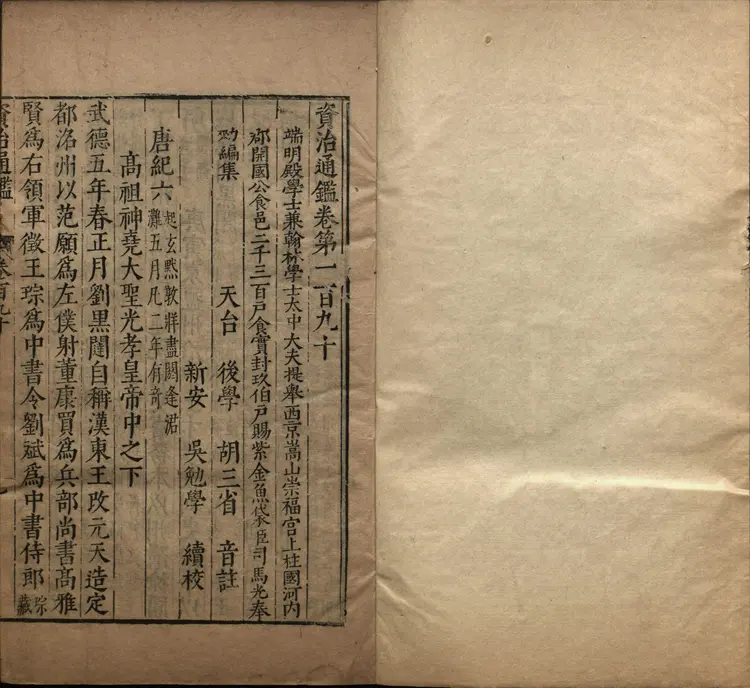 資治通鑑卷第一百九十
端明殿學士兼翰林學士太中大夫提舉西京嵩山崇福宮上柱國河內
郡開國公食邑二千三百戶食實封玖伯戶賜紫金魚袋臣司馬光奉
勑編集
天台 後學 胡三省 音註
新安 吳勉學 續校
唐紀六起玄黓敦牂盡閼逢涒
灘五月凡二年有奇
高祖神堯大聖光孝皇帝中之下
武德五年春正月劉黑闥自稱漢東王改元天造定
都洺州以范願爲左僕射董康買爲兵部尚書高雅
賢爲右領軍徵王琮爲中書令劉斌爲中書侍郎琮
藏
資治通鑑
卷百九十